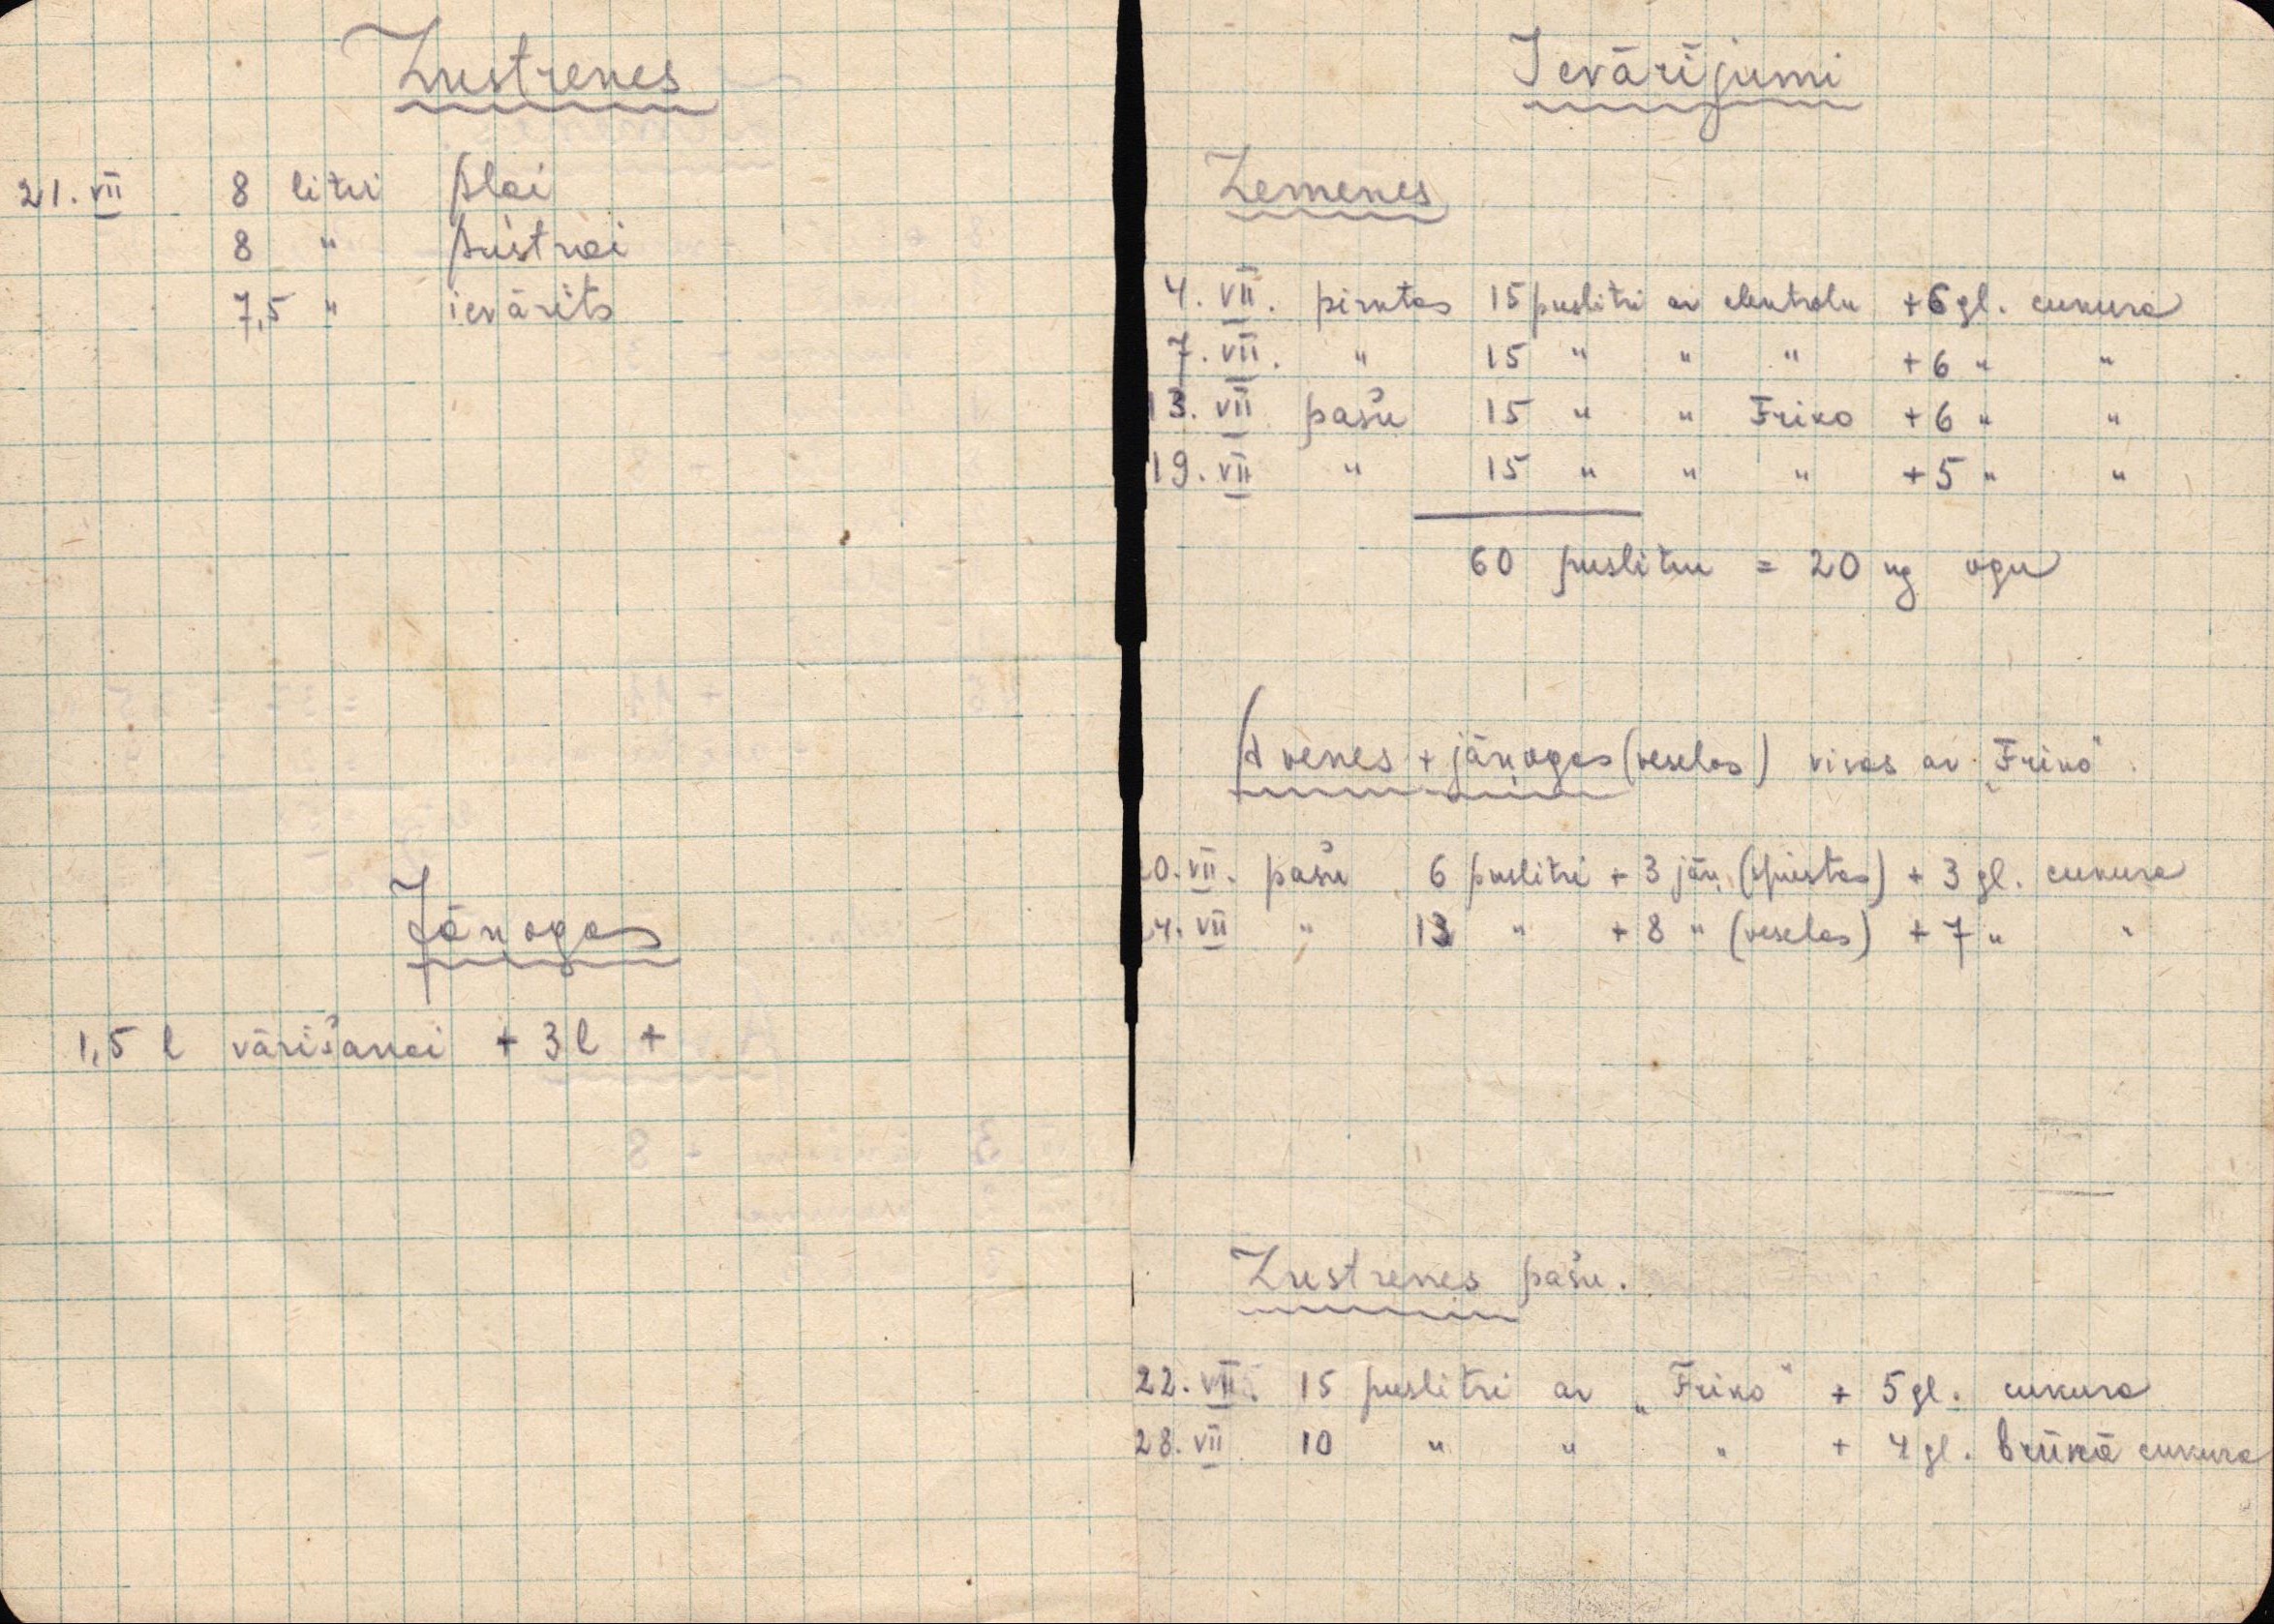 Zustrenes
21. VII 8 litri Alai
8 " Austrai
7,5 " ievārīts
Jāņogas
1,5 l vārīšanai + 3 l +
Ievārījumi
Zemenes
4. VII. pirktas 15 puslitri ar elektrolu +6 gl. cukura
7. VII. " 15 " " " +6 " "
13. VII pašu 15 " " Friko +6 " "
19. VII " 15 " " " +5 " "
60 puslitru = 20 kg ogu
Avenes + jāņogas (veselas) visas ar „Friko".
20. VII. pašu 6 puslitri + 3 jāņ. (spiestas) + 3 gl. cukura
24. VII " 13 " + 8 " (veselas) + 7 " "
Zustrenes pašu.
22. VII. 15 puslitri ar „Friko" + 5 gl. cukura
28. VII 10 " " " + 4 gl. brūnā cukura